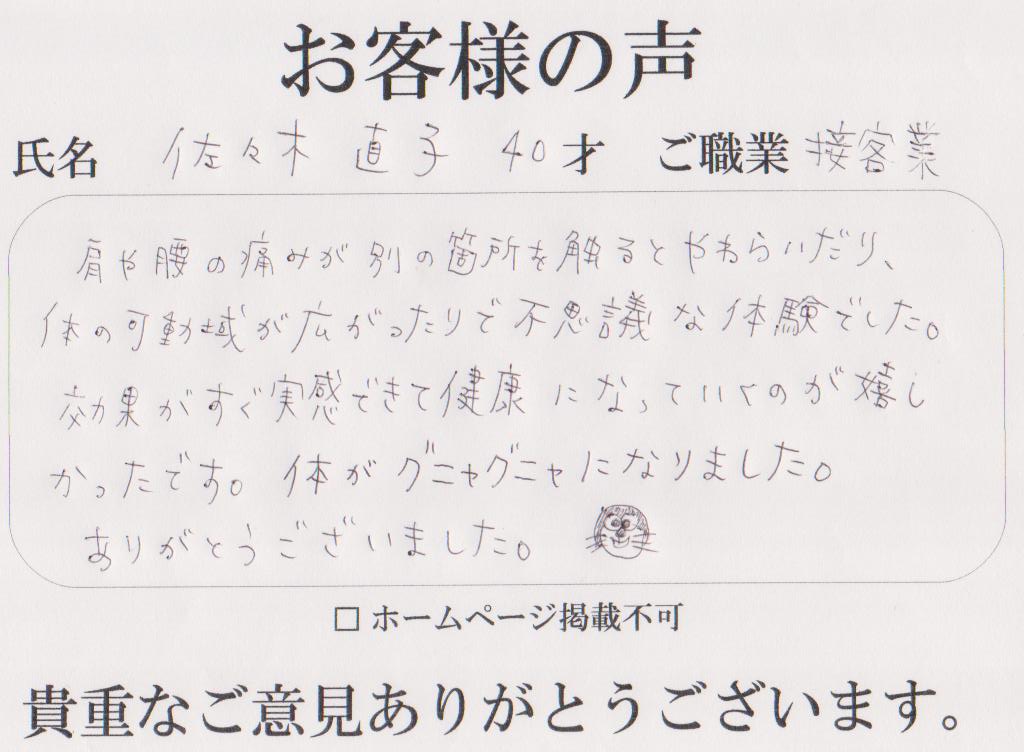 お客様の声
氏名 佐々木 直子 40才 ご職業 接客業
肩や腰の痛みが別の箇所を触るとやわらいだり、
体の可動域が広がったりで不思議な体験でした。
効果がすぐ実感できて健康になっていくのが嬉し
かったです。体がグニャグニャになりました。
ありがとうございました。
□ ホームページ掲載不可
貴重なご意見ありがとうございます。